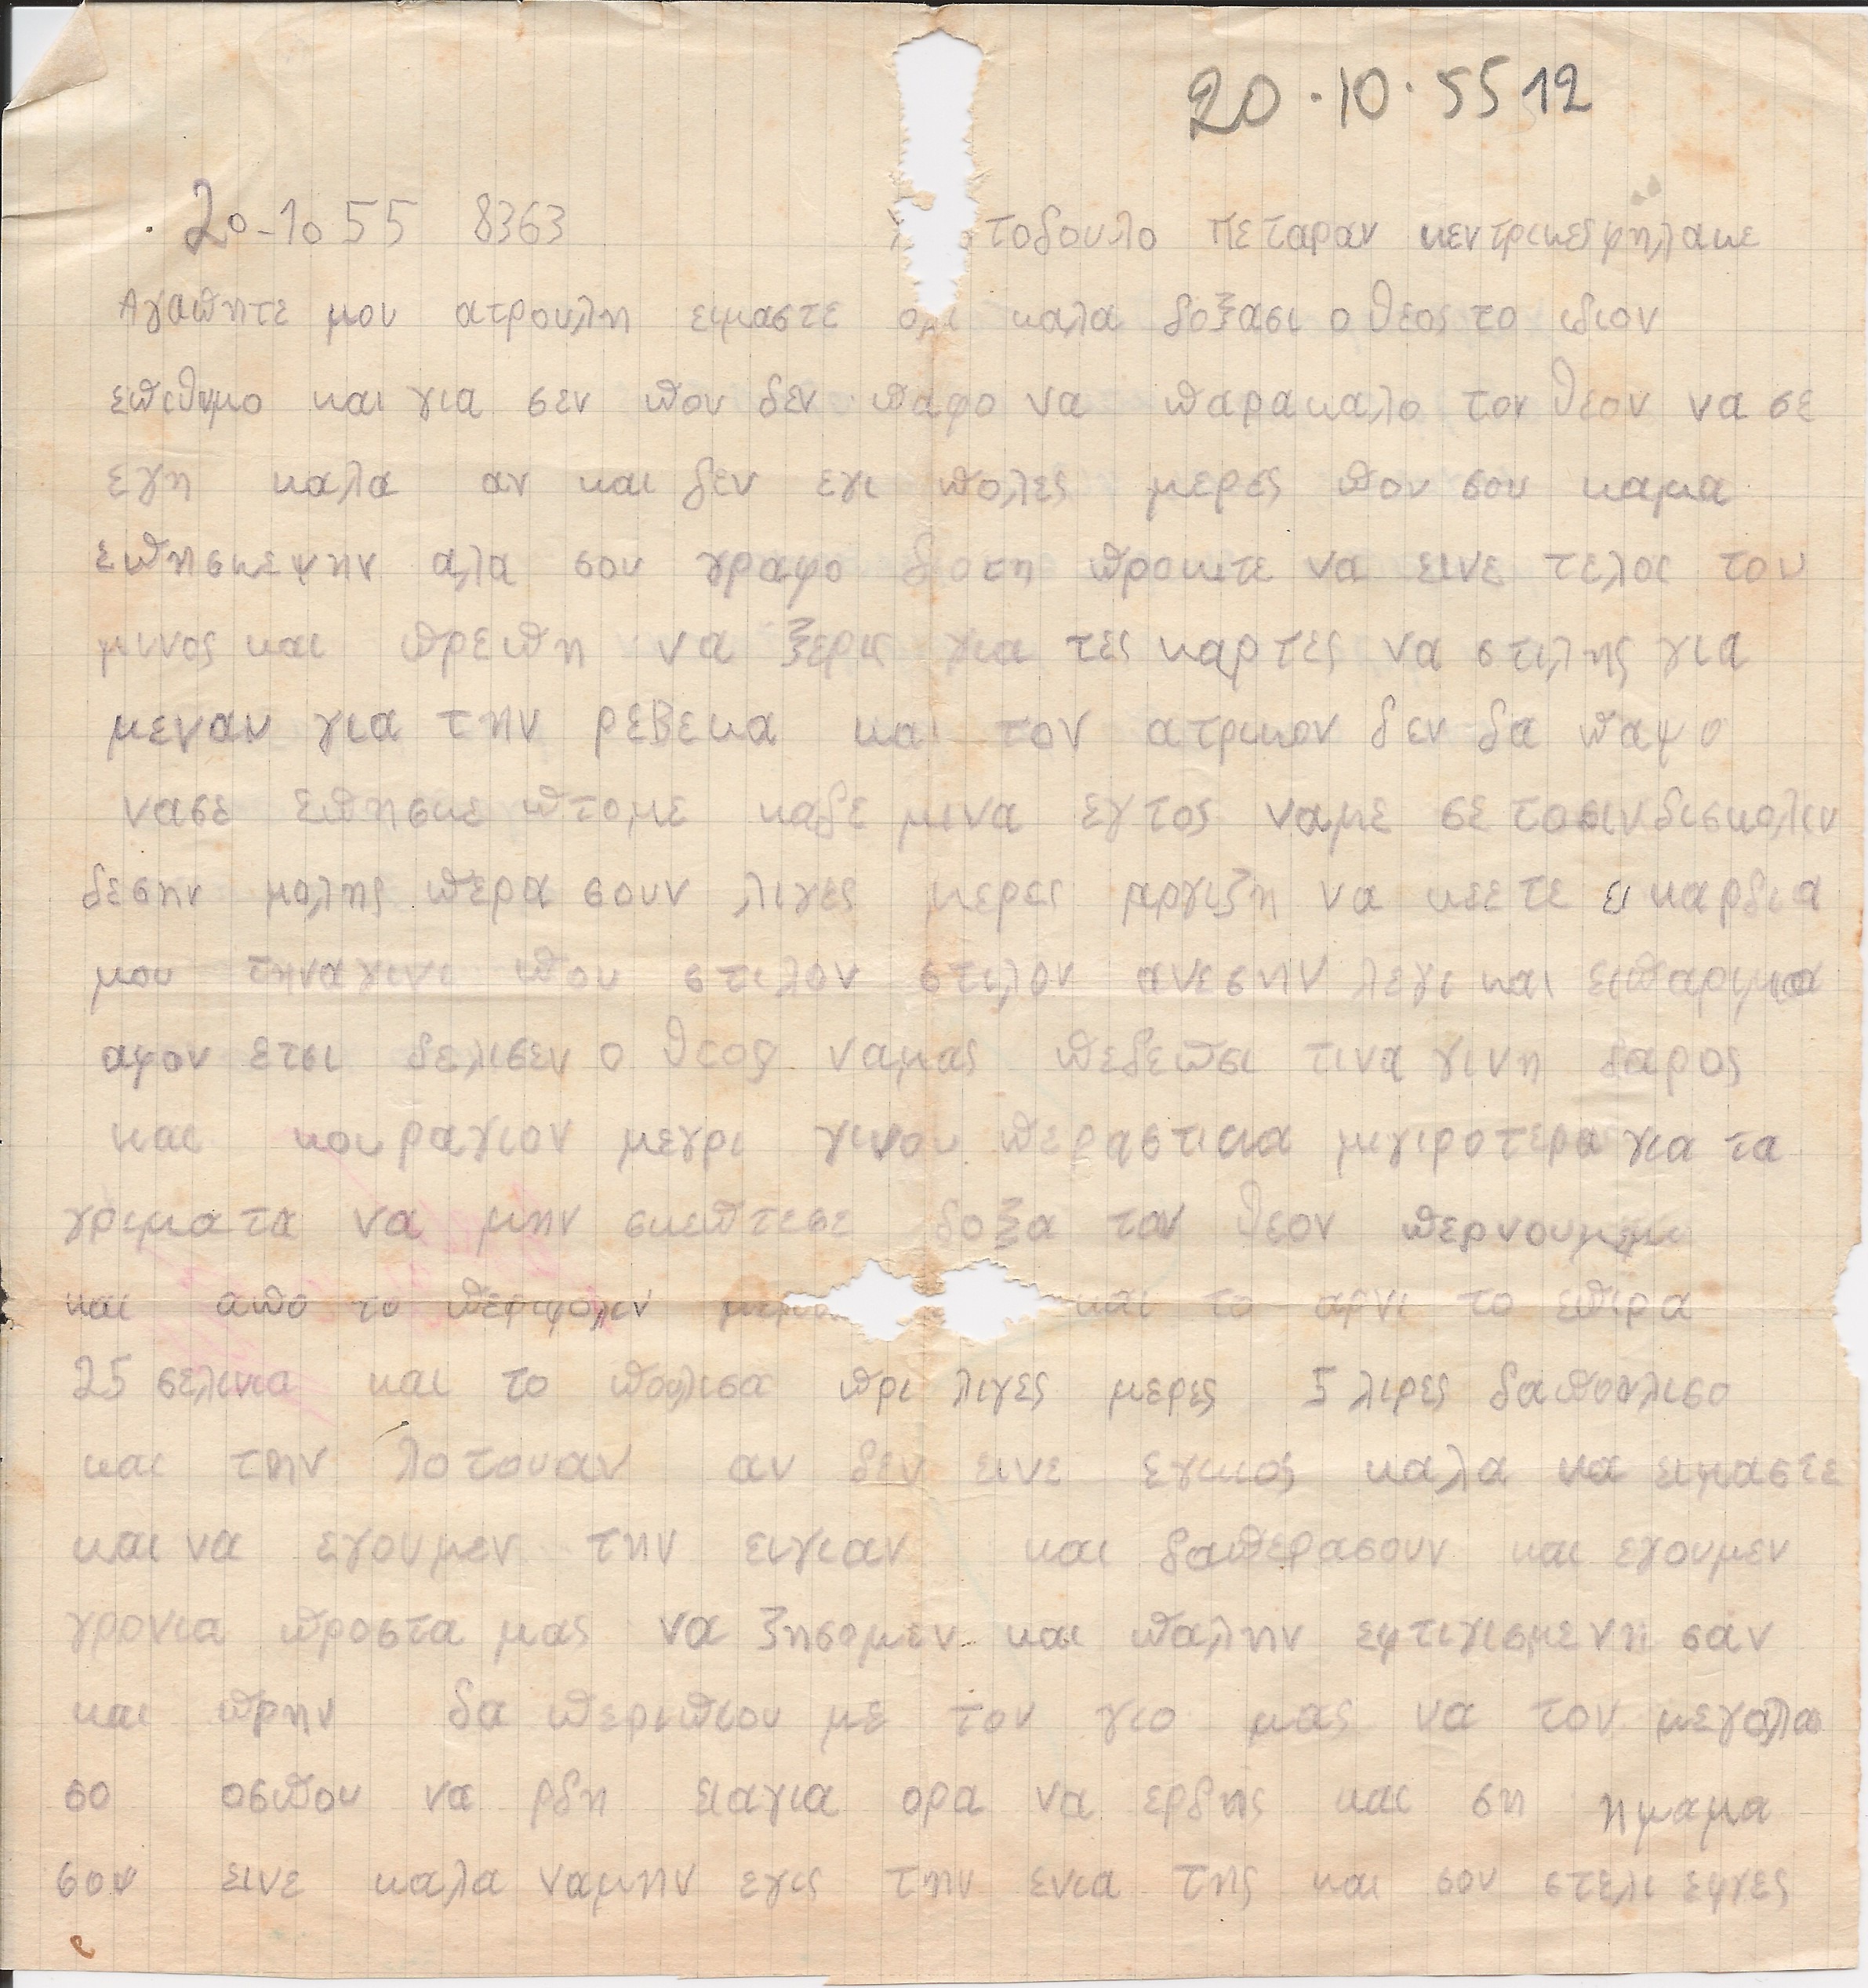 20·10·55 12
20-10 55 8363 τοδουλο πεταραν κεντρικες φηλακε
Αγαπητε μου ατρουλη ειμαστε ολι καλα δοξασι ο θεος το ιδιον
επιθιμο και για σεν που δεν παφο να παρακαλο τον θεον να σε
εγη καλα αν και δεν εγι πολες μερες που σου καμα
επησκεψην αλα σου γραφο διοτη προκιτε να εινε τελος του
μινος και πρεπη να ξερις για τες καρτες να στιλης για
μεναν για την ρεβεκα και τον ατρικον δεν δα παψο
νασε επησκε πτομε καδε μινα εγτος ναμε σε τοσινδισκολιν
δεσην μολης περα σουν λιγες μερες αργιζη να κεετε ει καρδια
μου τηναγινι που στιλον στιλον ανεσην λεγι και ειπαριμια
αφου ετσι δελισεν ο θεος ναμας πεδεπσι τινα γινη δαρος
και κουραγιον μεγρι γινου περαστικα μιγιροτερα για τα
γριματα να μην σκεπτεσε δοξα τον θεον περνουμεμε
και απο το περιφολιν και το αρνι το επιρα
25 σελινια και το πουλισα πρι λιγες μερες 5 λιρες δαπουλισο
και την λοτουαν αν δεν εινε εγκιος καλα να ειμαστε
και να εγουμεν την ειγιαν και δαπερασουν και εγουμεν
γρονια προστα μας να ζησομεν και παλην εφτιγισμενη σαν
και πρην δα περιπιου με τον γιο μας να τον μεγαλο
σο οσπου να ρδη ειαγια ορα να ερδης και ση ημαμα
σου εινε καλα ναμην εγις την ενια της και σου στελι εφγες